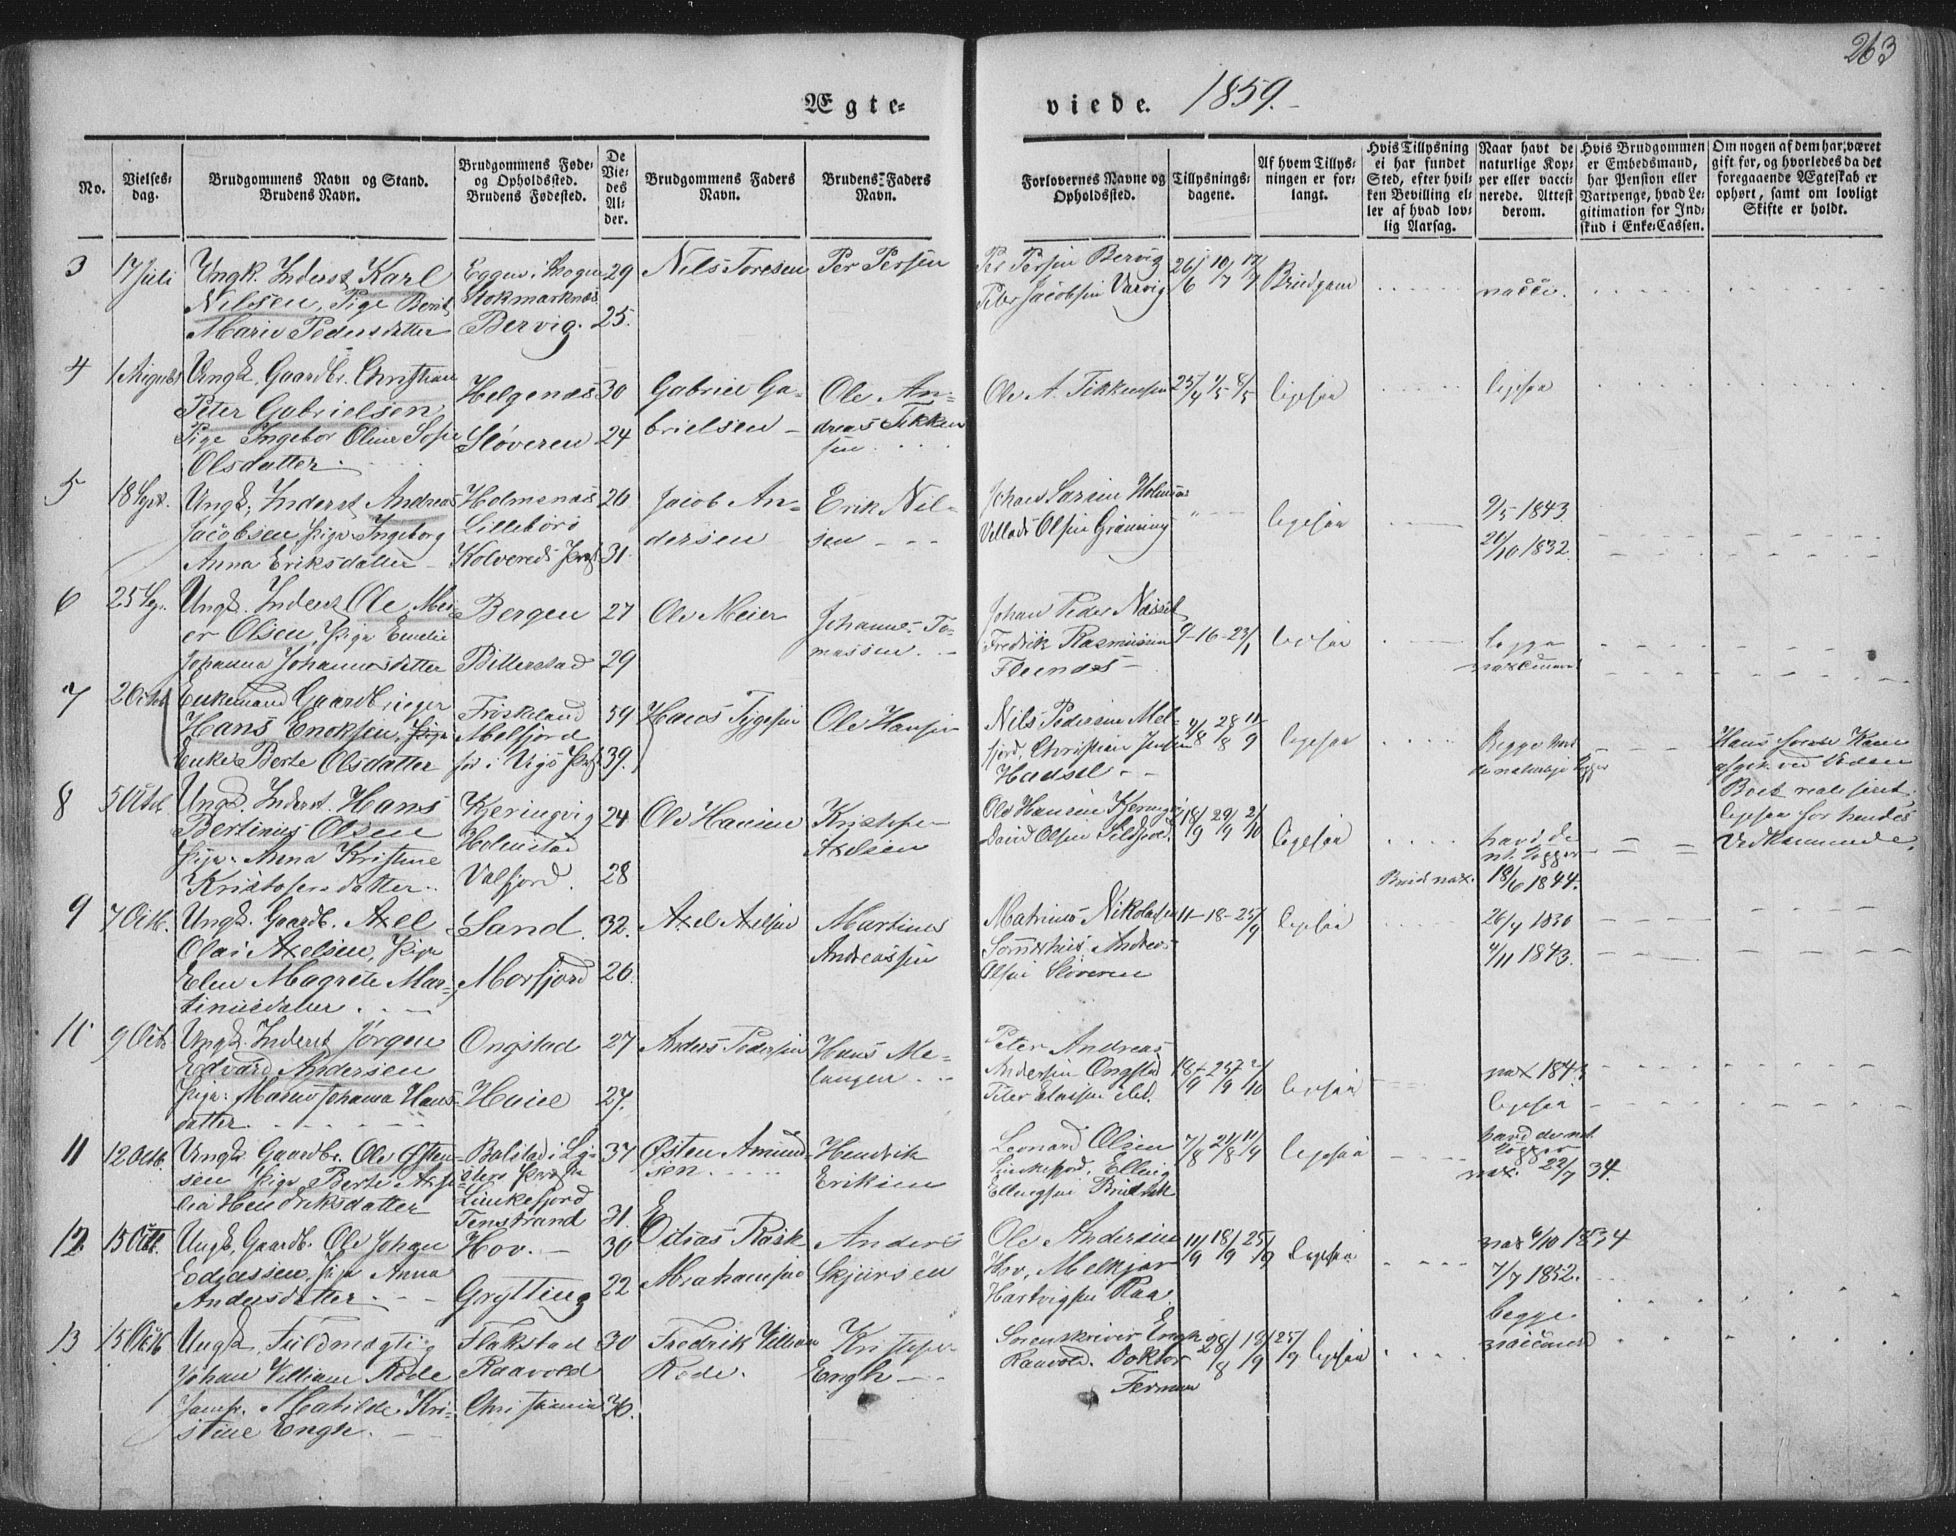 263
Ægte-
viede. 1859.
No.
Vielses-
dag.
Brudgommens Navn og Stand.
Brudens Navn.
Brudgommens Føde-
og Opholdssted.
Brudens Fødested.
De
Vie-
des
Al-
der.
Brudgommens Faders
Navn.
Brudens Faders
Navn.
Forlovernes Navne og
Opholdssted.
Tillysnings-
dagene.
Af hvem Tillys-
ningen er for-
langt.
Hvis Tillysning
ei har fundet
Sted, efter hvil-
ken Bevilling el-
ler af hvad lov-
lig Aarsag.
Naar havt de
naturlige Kop-
per eller vacci-
nerede. Attest
derom.
Hvis Brudgommen
er Embedsmand,
har Pension eller
Vartpenge, hvad Le-
gitimation for Ind-
skud i Enke-Cassen.
Om nogen af dem har været
gift før, og hvorledes da det
foregaaende Ægteskab er
ophørt, samt om lovligt
Skifte er holdt.
3
17 Juli
Ungk. Inderst Karl
Nilsen, Pige Berit
Marie Pedersdatter
Stokmarknæs
Bervig.
29
25.
Nils Toresen
Per Persen
Per Persen Bervig
Peter Jacobsen Varvig
26/6 10/7 17/7
Brudgom
vacci.
4
1 August
Ungk. Gaardbr. Christian
Peter Gabrielsen,
Pige Ingebor Oline Sofie
Olsdatter.
Helgenæs
Sløveren
30
24
Gabriel Ga-
brielsen
Ole An-
dreas Tikken
sen
Ole A. Tikkensen
25/4 1/5 8/5
ligesaa
ligesaa
5
18 Sept.
Ungk. Inderst Andreas
Jacobsen Pige Ingeborg
Anna Eriksdatter
Holmenæs
Lillebørø
Kolvereds Præst
26
31.
Jacob An-
dersen
Erik Nil-
sen
Johan Larsen Holmnæs
Villads Olsen Grønning
ligesaa
9/5 1843.
21/10 1832.
6
25 Sep.
Ungk. Inderst Ole Mei-
er Olsen, Pige Emelie
Johanna Johannesdatter
Bergen
Bitterstad
27
29
Ole Meier
Johannes To-
massen
Johan Peder Næsset
Fredrik Rasmussen
9-16-23/1
ligesaa
begge
vaccinered
7
2 Octob
Enkemand Gaardbruger
Hans Enoksen, Pige
Enke Berte Olsdatter
Frøskeland
Melfjord
før i Vigs Præst
59
39.
Hans Tygesen
Ole Hansen
Nils Pedersen Mel-
fjord, Christian Jensen
Hadsel
4/8 28/8 11/9
ligesaa
Begge havd
de naturlige Kopper
Hans første Kone
afgik ved Døden
Boet realiseret.
ligesaa for hendes
Vedkommende.
8
5 Octob
Ungk. Inderst Hans
Bertinius Olsen
Pige Anna Kristine
Kristofersdatter.
Kjeringvig
Holmstad
Valfjord.
24
28
Ole Hansen
Kristofer
Axelsen
Ole Hansen Kjeringvig
David Olsen Sildpold.
18/9 29/9 2/10
ligesaa
Brud vax.
havd de
nt. Kopper
18/6 1844.
9
7 Octb.
Ungk. Gaardb. Axel
Olai Axelsen, Pige
Elen Magrete Mar-
tinusdatter
Sand.
Morfjord
32.
26.
Axel Axelsen
Martines
Andreassen
Matrius Nikolaisen
Andreas
Olsen Sløveren
11-18-25/9
ligesaa
26/4 1830
4/11 1843.
10
9 Octb
Ungk. Inderst Jørgen
Edvard Andersen
Pige Maren Johanna Hans-
datter.
Ongstad
27
27.
Anders Pedersen
Hans Me-
langen
Peter Andreas
Andersen Ongstad
18/9 25/9 2/10
ligesaa
vax 1843
ligesaa
11
12 Octb.
Ungk. Gaardbr. Ole Østen-
sen Pige Berte
Hendriksdatter
Balstad i
Linkefjord
Tenstrand
37
31.
Østen Amund
sen
Hendrik
Eriksen
Leonard Olsen
Linkefjord, Elling
Ellingsen
7/8 21/8 11/9
ligesaa
havd de nt.
Kopper
vax. 22/7 34.
12.
15 Octb.
Ungk. Gaardb. Ole Johan
Ediassen, Pige Anna
Andersdatter
Hov.
Grytting
30
22
Edias Rask
Abrahamsen
Anders
Skjørsen
Ole Andersen
Hov, Melkjor
Hartvigsen Raa
11/9 18/9 25/9
ligesaa
vax 6/10 1834
7/7 1852.
13
15 Octb
Ungk. Fuldmægtig
Johan Villiam Rode
Jomfr. Matilde Kri-
stine Engh.
Flakstad
Raavold
Christiania
30
36.
Fredrik Villiam
Rode.
Kristofer
Engh
Sorenskriver Engh
Raavold. Doktor
28/8 18/9 25/9
ligesaa
begge
vaccinered